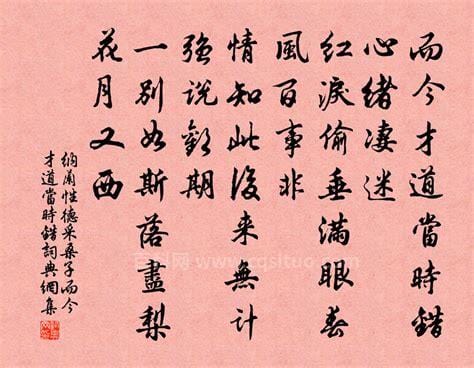 而今才道當時錯
心緒凄迷
紅淚偷垂滿眼春
風百事非
情知此後來無計
强說歡期
一別如斯落盡梨
花月又西
納蘭性德采桑子而今
才道當時錯詞典網集
www.cqsituo.com